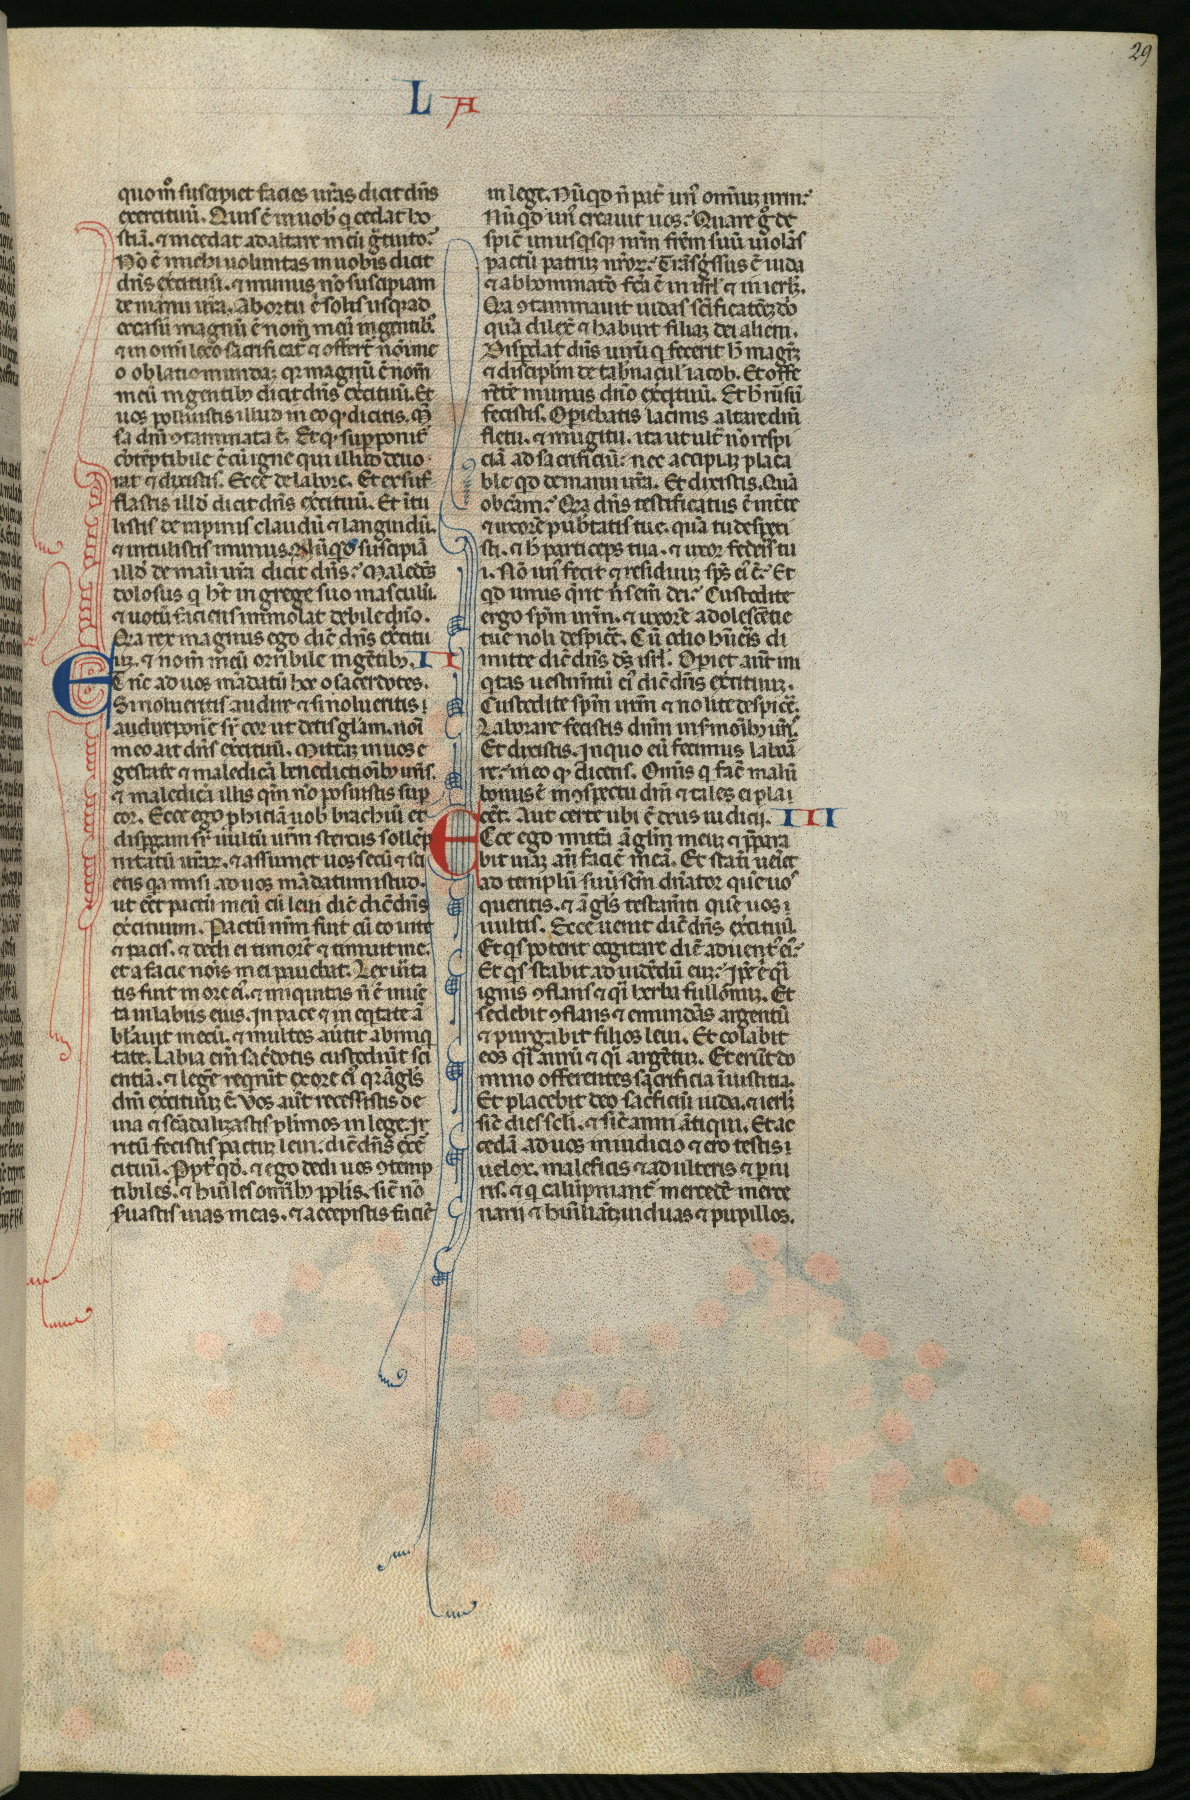 29
L A
quom̄ suscipiet facies ur̄as dicit dn̄s
exercituū. Quis ē in uob̄ q̇ cedat ho
stia. ⁊ incedat ad altare meū g̃tuito?
Nō ē michi uoluntas in uobis dicit
dn̄s ex̄cituū. ⁊ munus nō suscipiam
de manu ur̄a. Ab ortu ē solis usq; ad
occasū magnū ē nom̄ meū in gentib;
⁊ in om̄i loco sacrificat̄ ⁊ offert̄ nōmīe
o oblatio munda: qr magnū ē nom̄
meū in gentib; dicit dn̄s ex̄cituū. Et
uos polluistis illud in eo q̇ dicitis. M̄
sa dm̄ ꝯtaminata ē. Et q̇ supponit̄
ꝯtēptibile ē cū igne qui illud deuo
rat ⁊ dixistis. Ecce de labore. Et exsuf
flastis illd̄ dicit dn̄s ex̄cituū. Et ītu
listis de rapinis claudū ⁊ languidū.
⁊ intulistis munus. Nūqd̄ suscipiā
illd̄ de manu ur̄a dicit dn̄s? Maledc̄s
dolosus q̇ ht̄ in grege suo masculū.
⁊ uotū faciens immolat debile dn̄o.
Qr̄a rex magnus ego dic̄ dn̄s ex̄citu
uz. ⁊ nom̄ meū orribile in gētib;. II
Et nc̄ ad uos mādatū hoc o sacerdotes.
Si nolueritis audire ⁊ si nolueritis
audire ponē sr̄ cor ut detis gl̄am. noī
meo ait dn̄s ex̄cituū. Mittaz in uos e
gestatē ⁊ maledicā benedictioīb; ur̄is.
⁊ maledicā illis qm̄ nō posuistis sup̄
cor. Ecce ego p̄hiciā uob̄ brachiū et
disp̄gam sr̄ uultū ur̄m stercus sollēp
nitatū ur̄aꝝ. ⁊ assumet uos secū ⁊ sci
etis qa misi ad uos mādatum istud.
ut eēt pactū meū cū leui dic̄ dic̄ dn̄s
ex̄cituum. Pactū m̄m fuit cū eo uite
⁊ pacis. ⁊ dedi ei timorē ⁊ timuit me.
et a facie nōis mei pauebat. Lex uīta
tis fuit in ore ei. ⁊ iniquitas n̄ ē inuē
ta in labiis eius. In pace ⁊ in eq̇tate ā
bl̄auit mecū. ⁊ multos aūtit ab iniq̇
tate. Labia em̄ sac̄dotis custodiūt sci
entiā. ⁊ legē req̇rūt ex ore ei qr āgl̄s
dn̄i ex̄cituū ē. Vos aūt recessistis de
uia ⁊ scādalizastis pl̄imos in lege. Ir
ritū fecistis pactuz leui. dic̄ dn̄s exē
cituū. Ppt̄ qd̄. ⁊ ego dedi uos ꝯtemp
tibiles. ⁊ hūiles om̄ib; pplis. sic̄ nō
s̄uastis uias meas. ⁊ accepistis faciē
in lege. Nūqd̄ n̄ pat̄ un' om̄iuz nr̄m?
Nūqd̄ un' creauit nos? Quare g̊ de
spic̄ unusq̇sq; nr̄m frēm suū uiolās
pactū patruz nr̄oꝝ? Trās̄gssus ē iuda
⁊ abhominatō fc̄a ē in isrl̄ ⁊ in ierl̄z.
Qr̄a ꝯtaminauit iudas sc̄ificatōez dō
quā dilex̄ ⁊ habuit filiaz dei alieni.
Disp̄dat dn̄s uirū q̇ fecerit h̄ magr̄z
⁊ discipl̄m de tab̄nacul' iacob. Et offe
rētē munus dn̄o ex̄cituū. Et h̄ rūsū
fecistis. Op̄iebatis lacrimis altare dn̄i
fletu. ⁊ mugitu. ita ut ult̄ nō respi
ciā ad sacrificiū: nec accipiaz placa
bile qd̄ de manu ur̄a. Et dixistis. Quā
ob cām? Qr̄a dn̄s testificatus ē int̄ te
⁊ uxorē pub̄tatis tue. quā tu despexi
sti. ⁊ h̄ particeps tua. ⁊ uxor fed̄is tu
i. Nō un' fecit ⁊ residuuz sp̄s ei ē? Et
qd̄ unus q̄rit n̄ sem̄ dei? Custodite
ergo spm̄ ur̄m. ⁊ uxorē adolescētie
tue noli despic̄e. Cū odio hūeris di
mitte dic̄ dn̄s ds̄ isrl̄. Op̄iet aūt ini
q̇tas uestim̄tū ei dic̄ dn̄s ex̄cituuz.
Custodite spm̄ ur̄m ⁊ nolite despic̄e.
Laborare fecistis dn̄m in s̄moīb; ur̄is.
Et dixistis. In quo eū fecimus labora
re? in eo q̇ dicitis. Om̄is q̇ fac̄ malū
bonus ē in ꝯspectu dn̄i ⁊ tales ei plac
cēt. Aut certe ubi ē deus iudicij. III
Ecce ego mittā āgl̄m meuz ⁊ p̄para
bit uiaz an̄ faciē meā. Et statī ueīet
ad templū suū sc̄m dn̄ator quē uo
queritis. ⁊ āgl̄s testam̄ti quē uos
uultis. Ecce uenit dic̄ dn̄s ex̄cituū.
Et q̇s poterit cogitare diē aduent' ei?
Et q̇s stabit ad uidēdū euz? Ip̄e ē qī
ignis ꝯflans ⁊ qī herba fullonuz. Et
sedebit ꝯflans ⁊ emundās argentū
⁊ purgabit filios leui. Et colabit
eos qī aurū ⁊ qī argētuz. Et erūt do
mino offerentes sacrificia ī iustitia.
Et placebit deo sac̄ficiū iuda. ⁊ ierl̄z
sic̄ dies scl̄i. ⁊ sic̄ anni ātiqui. Et ac
cedā ad uos in iudicio ⁊ ero testis
uelox. maleficis ⁊ adulteris ⁊ p̄iu
ris. ⁊ q̇ calūpniant̄ mercedē merce
narij ⁊ hūiliāt uiduas ⁊ pupillos.